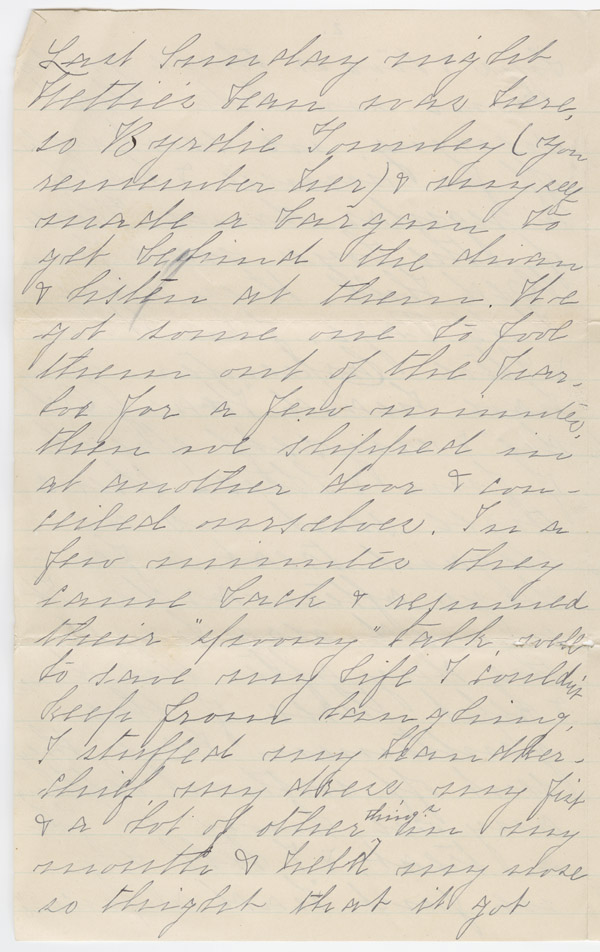 Last Sunday night
Nettie's beau was here,
so Byrdie Townley (you
remember her) & myself
made a bargain to
get behind the divan
& listen at them. We
got some one to fool
them out of the par-
lor for a few minutes,
then we slipped in
at another door & con-
seiled ourselves. In a
few minutes they
came back & resumed
their "spoony" talk, well
to save my life I couldn't
keep from laughing,
I stuffed my handker-
chief, my dress my fist
& a lot of other things in my
mouth & held my nose
so thight that it got